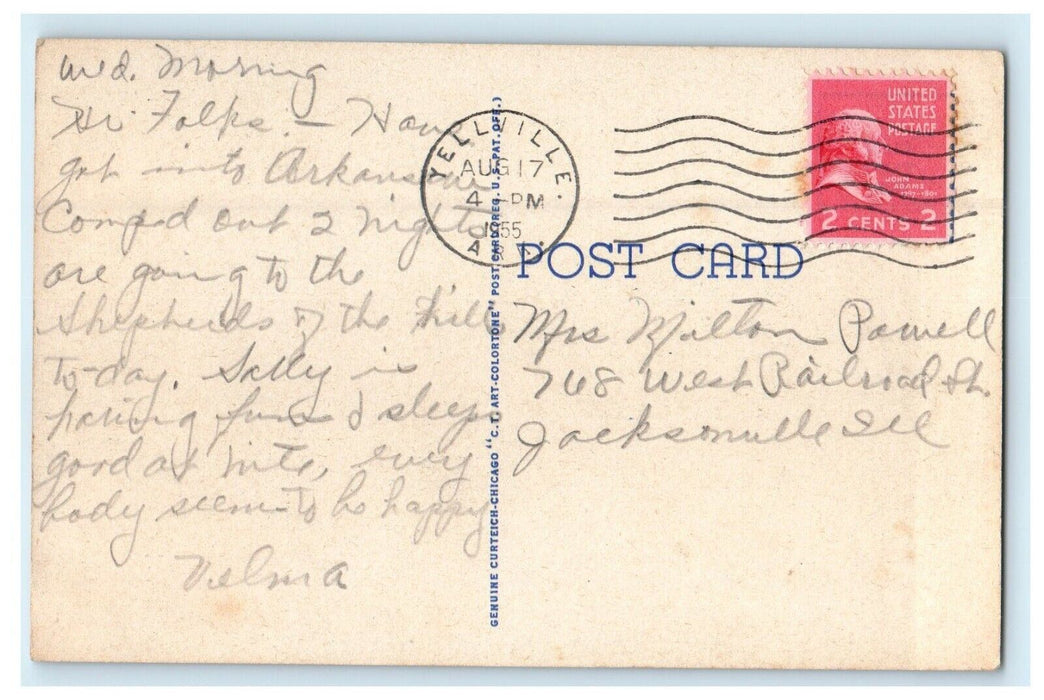 Wed. Morning
Hi Folks. — Have
got into Arkansas
Comped out 2 nights
are going to the
Shepherds of the Hills
to-day. Sally is
having fun & sleeps
good at nite, every
body seems to be happy
Velma
GENUINE CURTEICH-CHICAGO "C.T. ART-COLORTONE" POST CARD (REG. U.S. PAT. OFF.)
YELLVILLE
AUG 17
4 - PM
1955
ARK.
UNITED
STATES
POSTAGE
JOHN
ADAMS
1797-1801
2 CENTS 2
POST CARD
Mrs Milton Powell
768 West Railroad St.
Jacksonville Ill